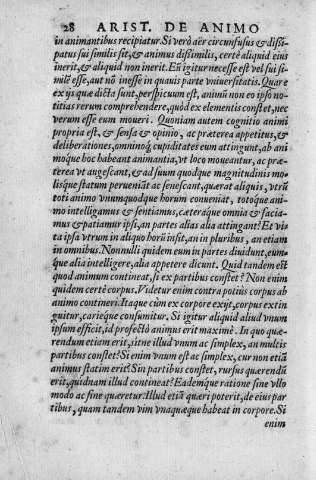 28 ARIST. DE ANIMO
in animantibus recipiatur. Si verò aër circunfusus & dissi-
patus sui similis sit, & animus dissimilis, certè aliquid eius
inerit, & aliquid non inerit. Eũ igitur necesse est vel sui si-
milẽ esse, aut nõ inesse in quauis parte vniuersitatis. Quare
ex ijs quæ dicta sunt, perspicuum est, animũ non eo ipso no-
titias rerum comprehendere, quòd ex elementis constet, nec
verum esse eum moueri. Quoniam autem cognitio animi
propria est, & sensa & opinio, ac præterea appetitus, &
deliberationes, omninoq́; cupiditates eum attingunt, ab ani
moque hoc habeant animantia, vt loco moueantur, ac præ-
terea vt augescant, & ad suum quodque magnitudinis mo-
lisque statum perueniãt ac senescant, quærat aliquis, vtrũ
toti animo vnumquodque horum conueniat, totoque ani-
mo intelligamus & sentiamus, cæteraque omnia & facia-
mus & patiamur ipsi, an partes alias alia attingant? Et vi-
ta ipsa vtrum in aliquo horũ insit, an in pluribus, an etiam
in omnibus. Nonnulli quidem eum in partes diuidunt, eum-
que alia intelligere, alia appetere dicunt. Quid tandem est
quod animum contineat, si ex partibus constet? Non enim
quidem certè corpus. Videtur enim contra potius corpus ab
animo contineri. Itaque cùm ex corpore exijt, corpus extin
guitur, carieque consumitur. Si igitur aliquid aliud vnum
ipsum efficit, id profectò animus erit maximè. In quo quæ-
rendum etiam erit, sit ne illud vnum ac simplex, an multis
partibus constet? Si enim vnum est ac simplex, cur non etiã
animus statim erit? Sin partibus constet, rursus quærendũ
erit, quidnam illud contineat? Eademque ratione sine vllo
modo ac fine quæretur. Illud etiã quæri poterit, de eius par
tibus, quam tandem vim vnaquæque habeat in corpore. Si
enim